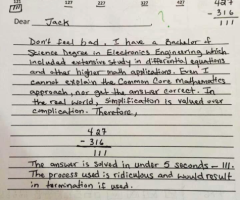 127 127 127 127 427
- 316
111
Dear Jack
Don't feel bad, I have a Bachelor of
Science Degree in Electronics Engineering which
included extensive study in differential equations
and other higher math applications. Even I
cannot explain the Common Core Mathematics
approach, nor get the answer correct. In
the real world, simplification is valued over
complication. Therefore,
427
- 316
111
The answer is solved in under 5 seconds — 111.
The process used is ridiculous and would result
in termination if used.